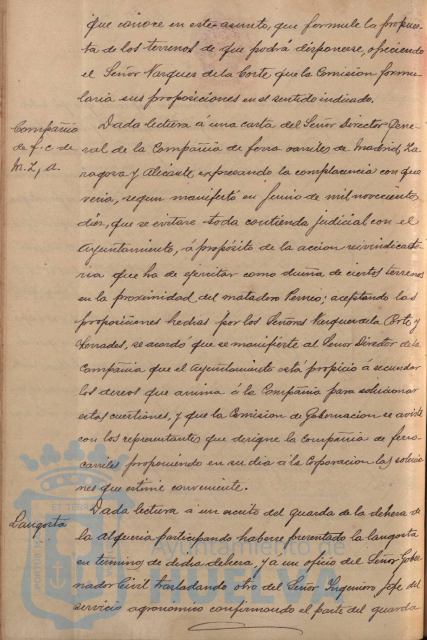 que conoce en este asunto, que formule la propues-
ta de los terrenos de que podrá disponerse, ofreciendo
el Señor Vazques de la Corte, que la Comision formu-
laria sus proposiciones en el sentido indicado.
Compañia
de f. c. de
M. Z. y A.
Dada lectura á una carta del Señor Director Gene-
ral de la Compañia de ferro carriles de Madrid, Za-
ragoza y Alicante, expresando la complacencia con que
veria, segun manifestó en Junio de mil novecientos
diez, que se evitase toda contienda judicial con el
Ayuntamiento, á propósito de la accion reivindicato-
ria que ha de ejercitar como dueña de ciertos terrenos
en la proximidad del matadero Perneo; aceptando las
proposiciones hechas por los Señores Vazquez de la Corte y
se acordó que se manifieste al Señor Director de la
Compañia que el Ayuntamiento está propicio á secundar
los deseos que anima á la Compañia para solucionar
estas cuestiones, y que la Comision de Gobernacion se aviste
con los representantes que designe la Compañia de ferro-
carriles proponiendo en su dia á la Corporacion las solucio-
nes que estime conveniente.
Langosta
Dada lectura á un escrito del guarda de la dehesa de
la Alqueria participando haberse presentado la langosta
en termino de dicha dehesa, y á un oficio del Señor Gober-
nador Civil trasladando otro del Señor Ingeniero Jefe del
servicio agronomico confirmando el parte del guarda
Ayuntamiento de
HUELVA